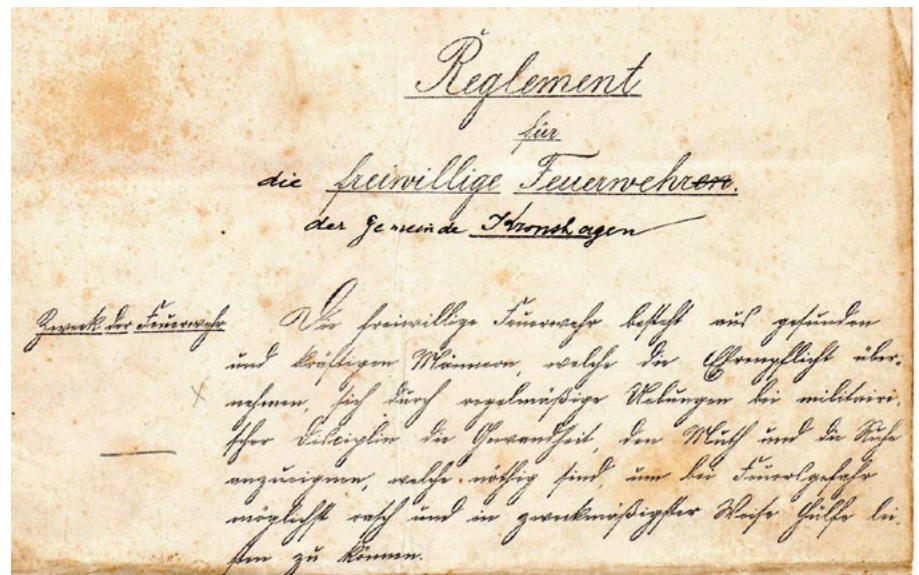 Reglement
für
die freiwillige Feuerwehren.
der Gemeinde Kronshagen
Zweck der Feuerwehr
Die freiwillige Feuerwehr besteht aus gesunden
und kräftigen Männern, welche die Ehrenpflicht über-
nehmen, sich durch regelmäßige Uebungen bei militairi-
scher Disciplin die Gewandheit, den Muth und die Ruhe
anzueignen, welche nöthig sind, um bei Feuersgefahr
möglichst rasch und in zweckmäßigster Weise Hülfe lei-
sten zu können.